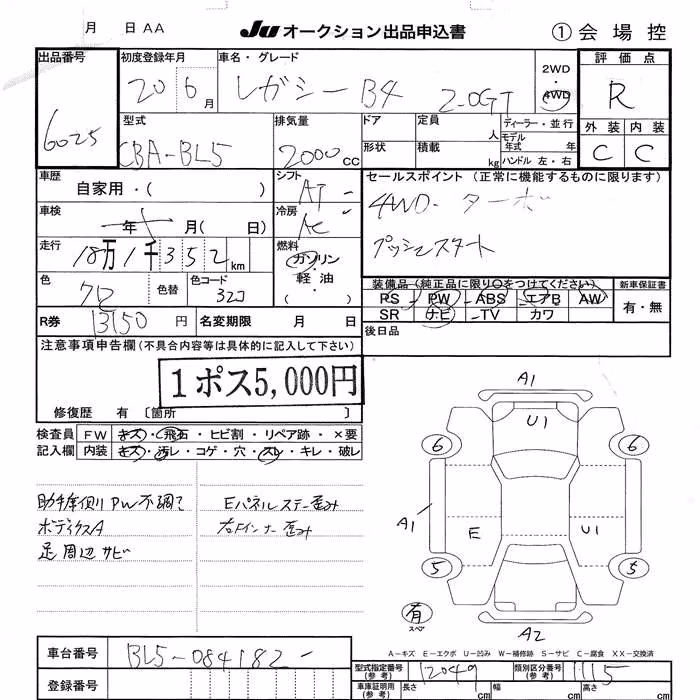 月 日 AA Ju オークション出品申込書 ① 会場控
出品番号 初度登録年月 車名・グレード 2WD ・ 4WD 評価点
6025 20 6月 レガシー B4 2.0GT R
型式 排気量 ドア 定員 人 ディーラー・並行 外装 内装
CBA-BL5 2000cc 形状 積載 kg モデル年式 年 ハンドル 左・右 C C
車歴 自家用・( ) シフト AT セールスポイント (正常に機能するものに限ります)
車検 年 月( 日) 冷房 AC 4WD・ターボ
走行 18万1千352km 燃料 ガソリン・軽油・ プッシュスタート
色 クロ 色替 色コード 32J 装備品 (純正品に限り○をつけてください) 新車保証書
PS - PW - ABS - エアB - AW 有・無
SR - ナビ - TV カワ
R券 13150円 名変期限 月 日 後日品
注意事項申告欄 (不具合内容等は具体的に記入して下さい)
1ポス5,000円
修復歴 有 〔箇所 〕
検査員 FW キズ・飛石・ヒビ割・リペア跡・×要
記入欄 内装 キズ・汚レ・コゲ・穴・スレ・キレ・破レ
A1
U1
6 6
助手席側PW不調て Eパネルステー歪み
ボディクスA 右Fインナー歪み
足周辺サビ
A1 E U1
5 5
有 スペア
A2
A-キズ E-エクボ U-凹み W-補修跡 S-サビ C-腐食 XX-交換済
車台番号 BL5-084182-
型式指定番号(参考) 12049 類別区分番号(参考) 1115
登録番号 車庫証明用(参考) 長さ cm 幅 cm 高さ cm